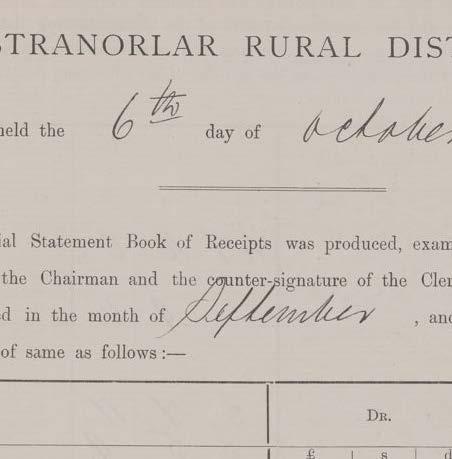 STRANORLAR RURAL DIST
held the 6th day of October
ial Statement Book of Receipts was produced, exam
the Chairman and the counter-signature of the Cler
d in the month of September , and
of same as follows :—
DR.
£ s d